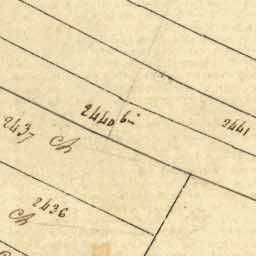 2440 bis
2441
2437 Ch
2436
Ch